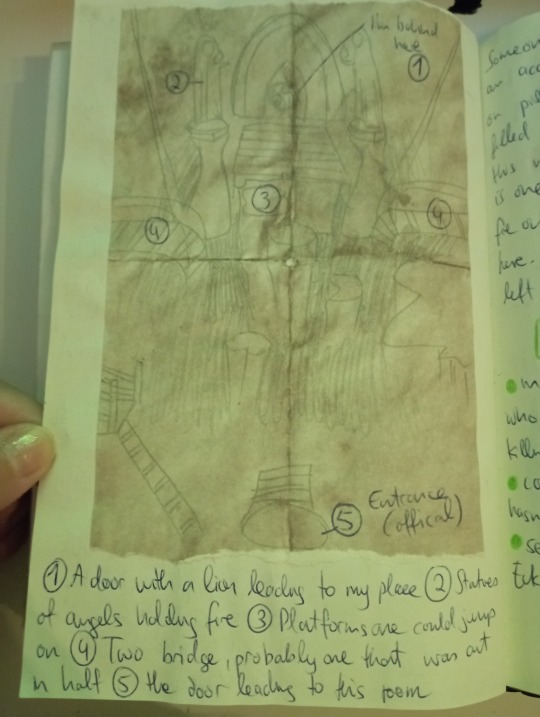 I'm behind
here
①
②
③
④
④
Entrance
⑤ (offical)
① A door with a lion leading to my place ② Statues
of angels holding fire ③ Platforms one could jump
on ④ Two bridge, probably one that was cut
in half ⑤ the door leading to this room
Someon
an acc
on pi
filled
this w
is one
fie ou
here.
left
who
kille
hasn